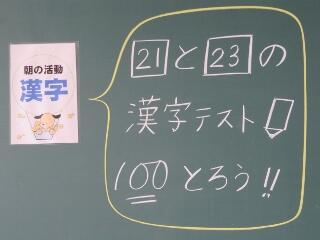 朝の活動
漢字
21と23の
漢字テスト
100とろう!!